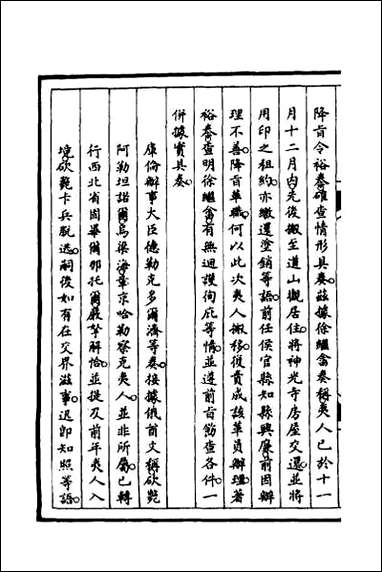 降旨令裕泰確查情形具奏茲據徐繼畬奏稱夷人已於十一
月十二月內先後搬至道山觀居住將神光寺房屋交還並將
用印之租約亦繳還塗銷等語前任侯官縣知縣興廉前因辦
理不善降旨革職何以此次夷人搬移復責成該革員辦理著
裕泰查明徐繼畬有無迴護徇庇等情並遵前旨飭查各件一
併據實具奏
庫倫辦事大臣德勒克多爾濟等奏接據俄首文稱砍斃
阿勒坦諾爾烏梁海韋京哈勒察克夷人並非所屬已轉
行西北省固畢爾那托爾嚴拏解恰並提及前年夷人入
境砍斃卡兵脫逃嗣後如有在交界滋事迅即知照等語